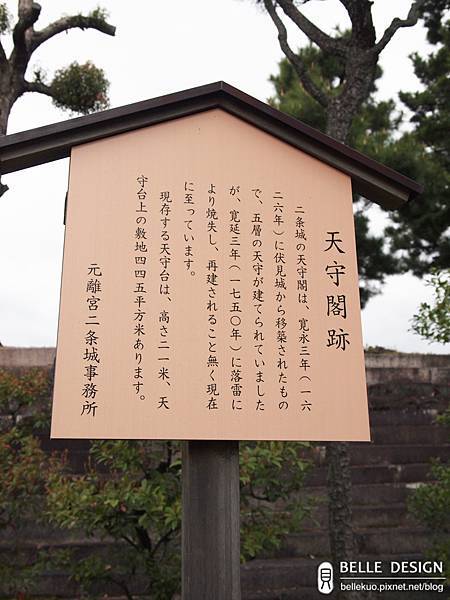 天守閣跡
二条城の天守閣は、寛永三年(一六
二六年)に伏見城から移築されたもの
で、五層の天守が建てられていました
が、寛延三年(一七五〇年)に落雷に
より焼失し、再建されること無く現在
に至っています。
現存する天守台は、高さ二一米、天
守台上の敷地四四五平方米あります。
元離宮二条城事務所
BELLE DESIGN
bellekuo.pixnet.net/blog